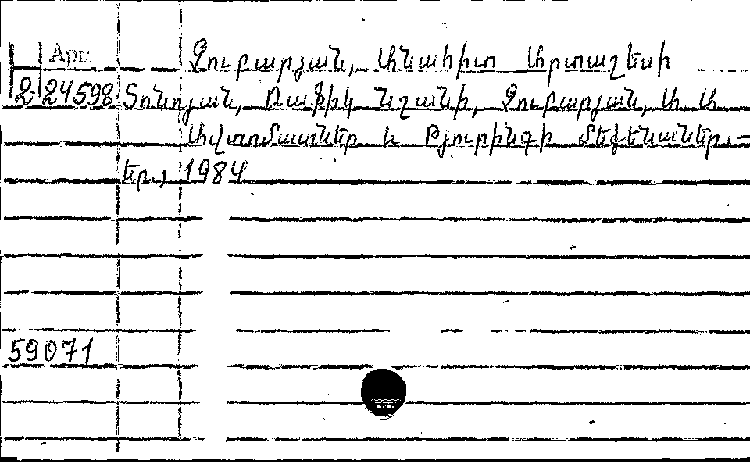 Арм Չուբարյան, Անահիտ Արտաշեսի
2 24598 Տոնոյան, Ռաֆիկ Նշանի, Չուբարյան, Ա. Ա.
Ավտոմատներ և Թյուրինգի մեքենաներ.–
Եր., 1984
59071